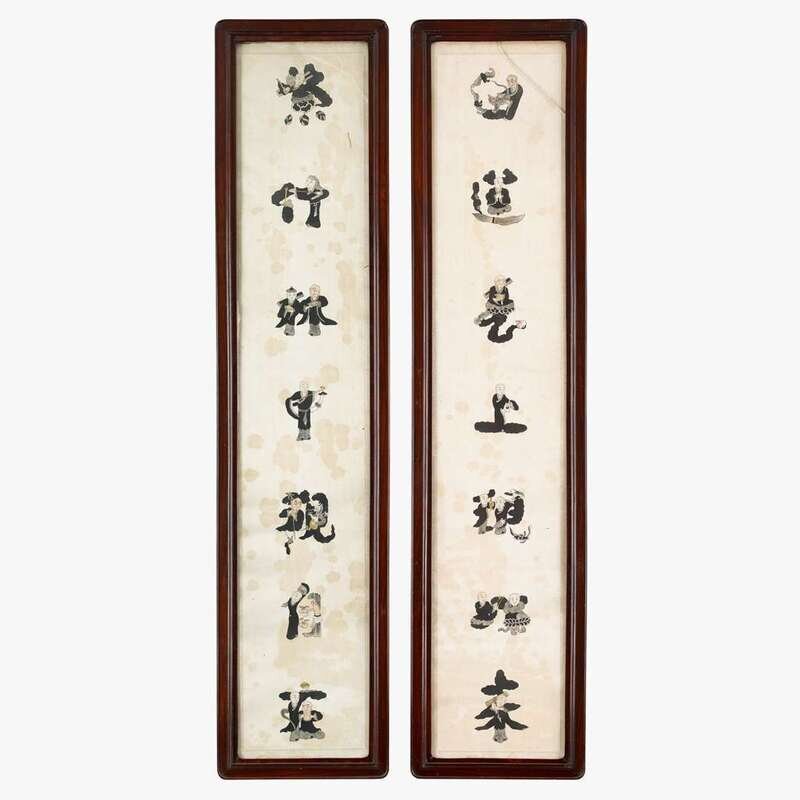 紫竹林中觀自在
白蓮臺上現如来